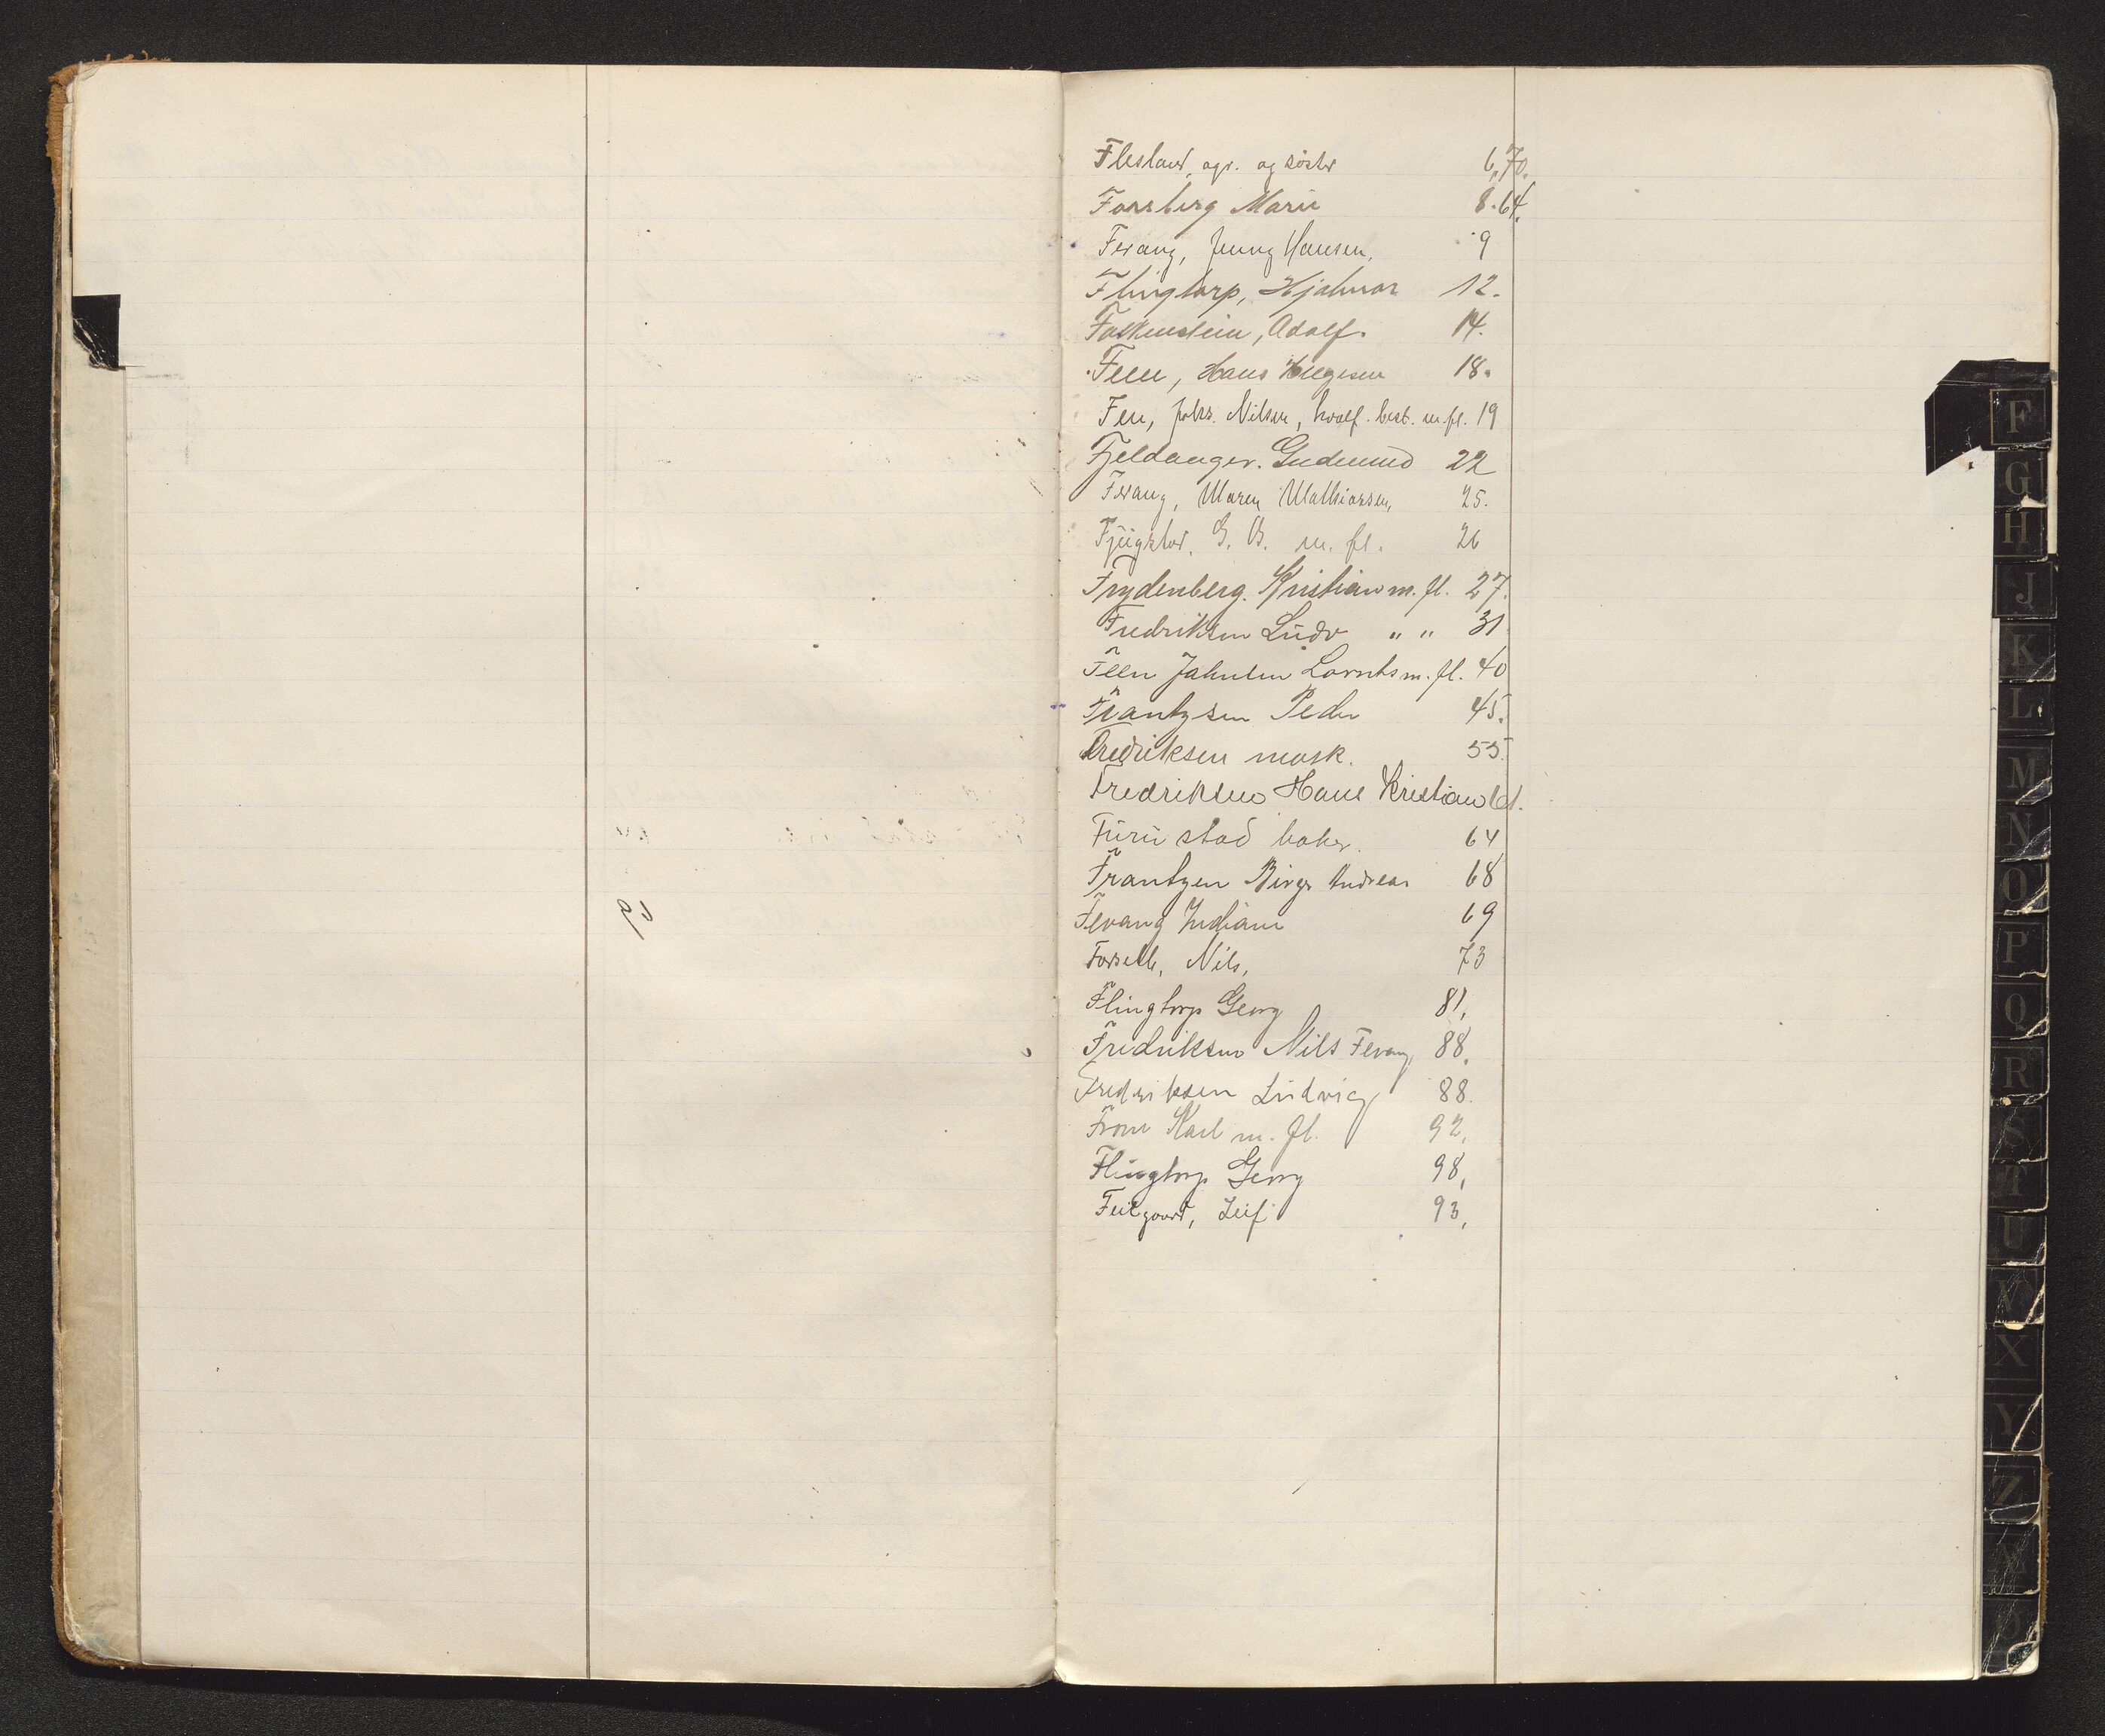 Flesland, agr. og søster 6, 70.
Forsberg Marie 8. 64.
Fevang, Jenny Hansen, 9
Flingtorp, Hjalmar 12.
Falkenstein, Adolf. 14.
Feen, Hans 18.
Fen, Johs. Nilsen, hvalf. best. m. fl. 19
Fjeldanger. Gudmund 22
Fevang, Maren Mathiassen, 25.
m. fl. 26
Frydenberg. Kristian m. fl. 27.
Fredriksen Ludv " " 31
Feen Johnsen Lorents m. fl. 40
Frantzsen Peder 45.
Fredriksen mask. 55.
Fredriksen Hans Kristian 61.
Furustad baker. 64
Frantzen Birger Andreas 68
Fevang Indiane 69
Forseth, Nils, 73
Flingtorp Georg 81,
Fredriksen Nils Fevang 88.
Fredriksen Ludvig 88.
From Karl m. fl. 92,
Flingtorp Georg 98,
Feilgaard, Leif 93,
F
G
H
J
K
L
M
N
O
P
Q
R
S
T
U
V
X
Y
Z